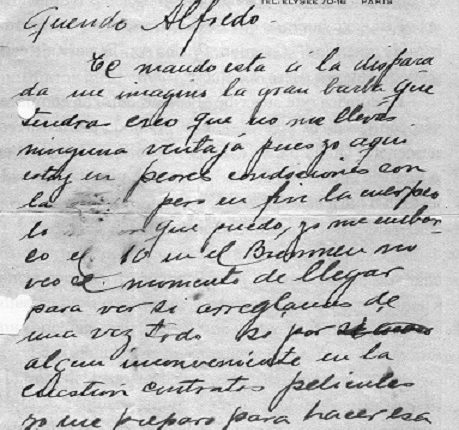 TEL. ELYSEE 70-16 PARIS
Querido Alfredo.
Te mando esta a la dispara
da me imagino la gran barba que
tendra creo que no me lleva
ninguna ventaja pues yo aqui
estoy en peores condiciones con
la pero en fin la cuerpeo
lo que puedo, yo me embar
co el 10 en el Bremen no
veo el momento de llegar
para ver si arreglamos de
una vez todo por
algun inconveniente en la
cuestion contratos peliculas
yo me preparo para hacer esa